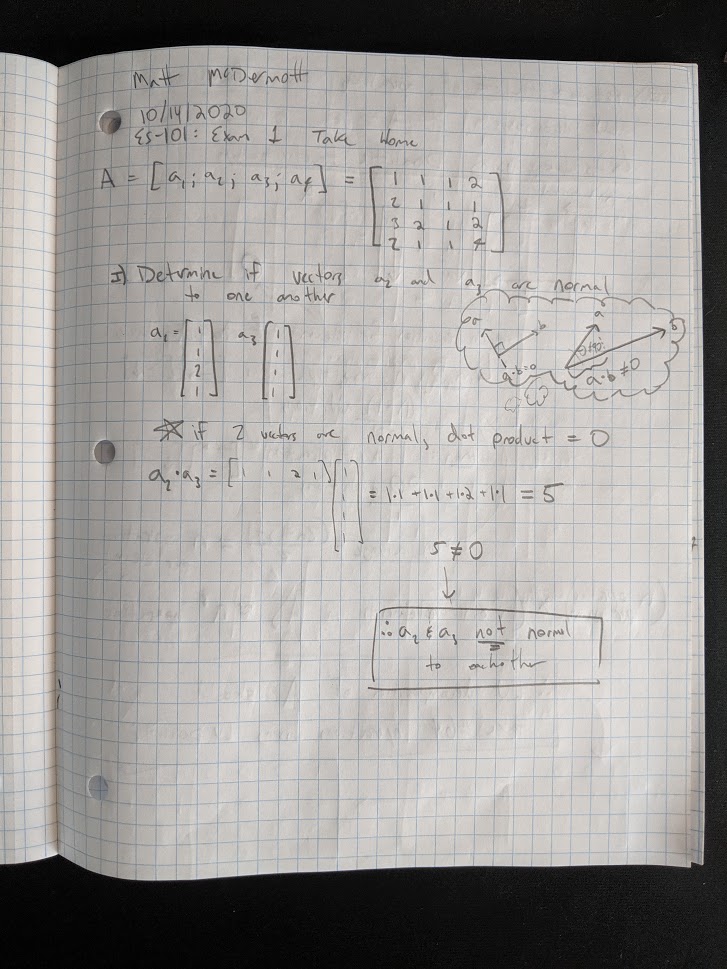 Matt McDermott
10/14/2020
ES-101: Exam 1 Take Home
A = [a₁; a₂; a₃; a₄] = [1 1 1 2
2 1 1 1
3 2 1 2
2 1 1 4]
I) Determine if vectors a₂ and a₃ are normal
to one another
a₂ = [1 1 2 1] a₃ [1 1 1 1]
a b a·b=0 a b a·b≠0
☆ if 2 vectors are normal, dot product = 0
a₂·a₃ = [1 1 2 1][1 1 1 1] = 1·1 + 1·1 + 1·2 + 1·1 = 5
5 ≠ 0
↓
∴ a₂ & a₃ not normal
to eachother